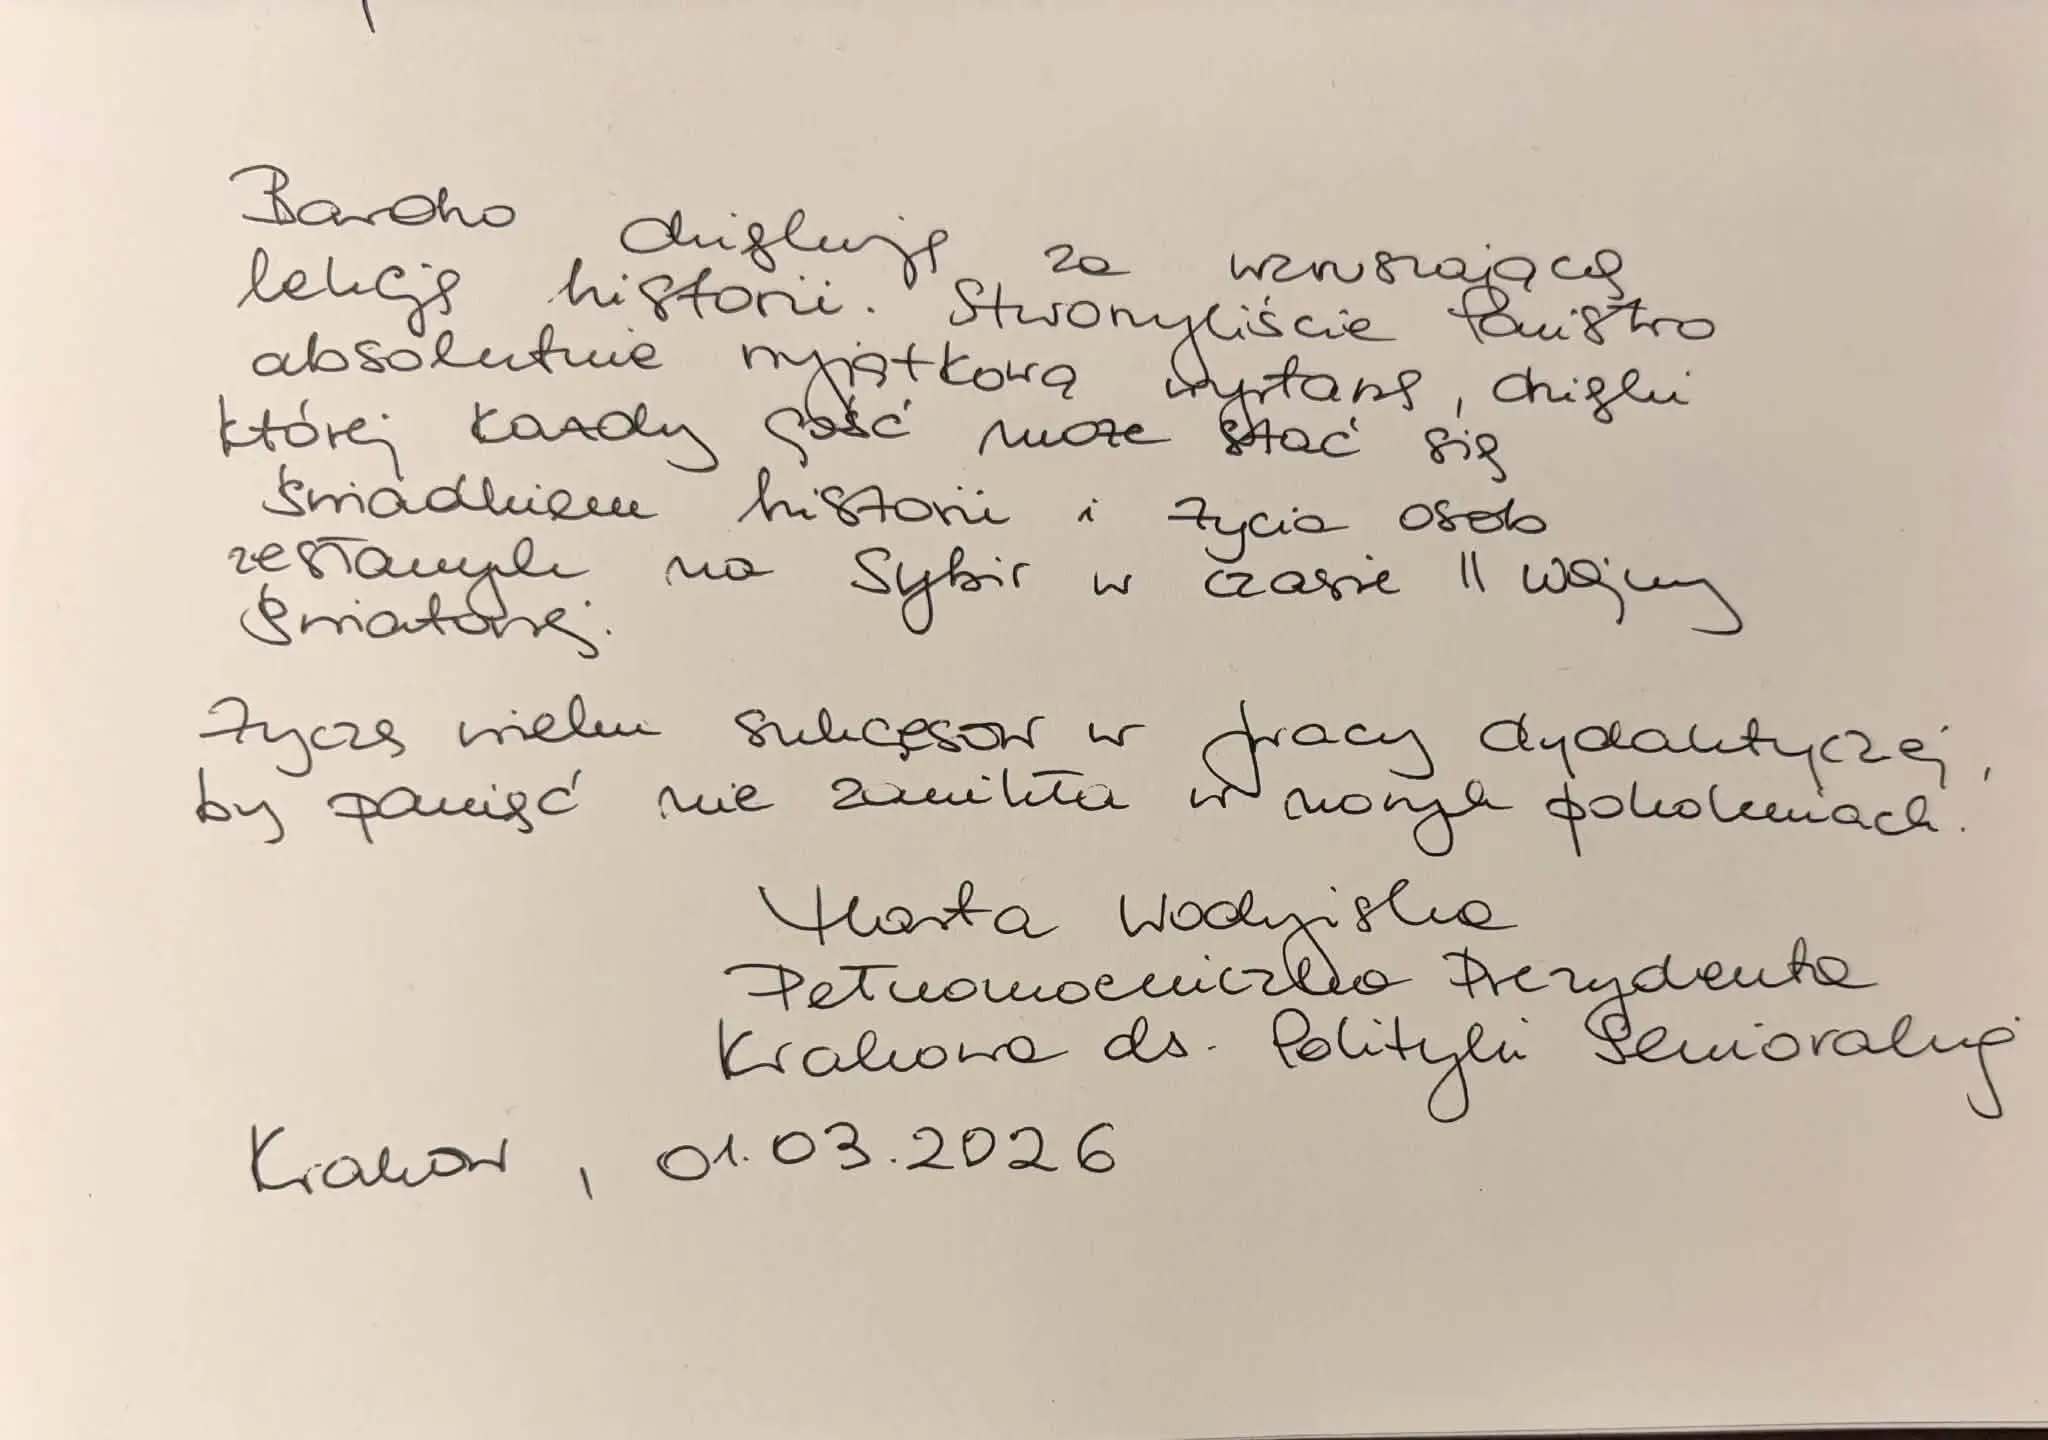 Bardzo dziękuję za wzruszającą
lekcję historii. Stworzyliście Państwo
absolutnie wyjątkową wystawę, dzięki
której każdy gość może stać się
świadkiem historii i życia osób
zesłanych na Sybir w czasie II wojny
światowej.
Życzę wielu sukcesów w pracy dydaktycznej,
by pamięć nie zanikła w nowych pokoleniach.
Marta
Pełnomocniczka Prezydenta
Krakowa ds. Polityki Senioralnej
Kraków, 01.03.2026